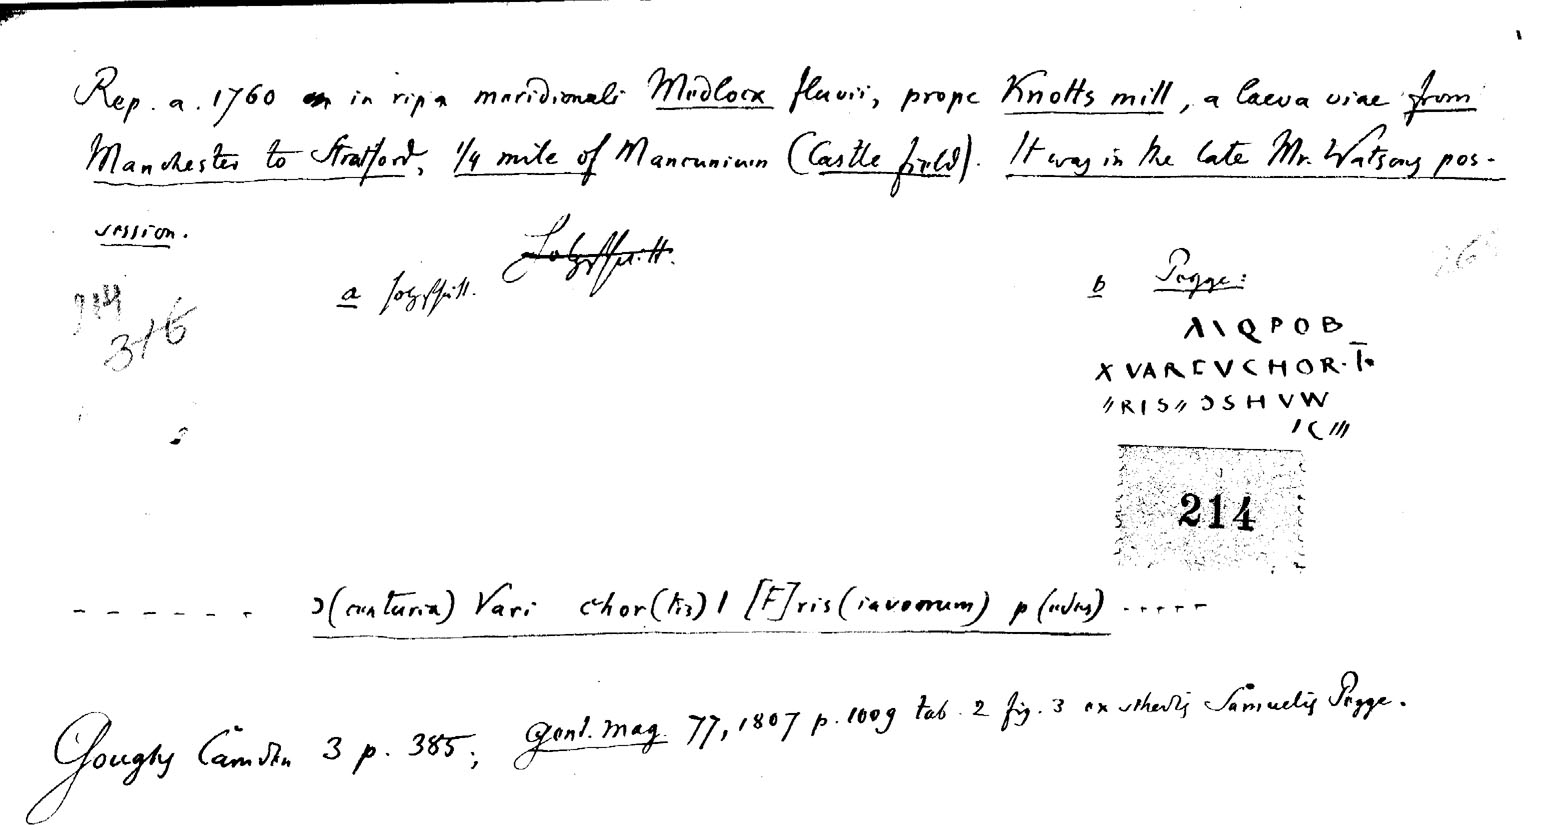 Rep. a. 1760 in ripa meridionali Medlock fluvii, prope Knotts mill, a laeva viae from
Manchester to Stratford, 1/4 mile of Mancunium (Castle field). It was in the late Mr. Watsons pos-
session.
a
b Pegge:
Λ \ Q P O B
X VARCVCHOR. Ī.
// RIS // Ɔ S H V W
/ C ///
214
- - - - - - Ɔ(centuria) Vari chor(tis) I [F]ris(iavonum) p(edes) .....
Goughs Camden 3 p. 385; Gent. Mag. 77, 1807 p. 1009 tab. 2 fig. 3 ex schedis Samuelis Pegge.